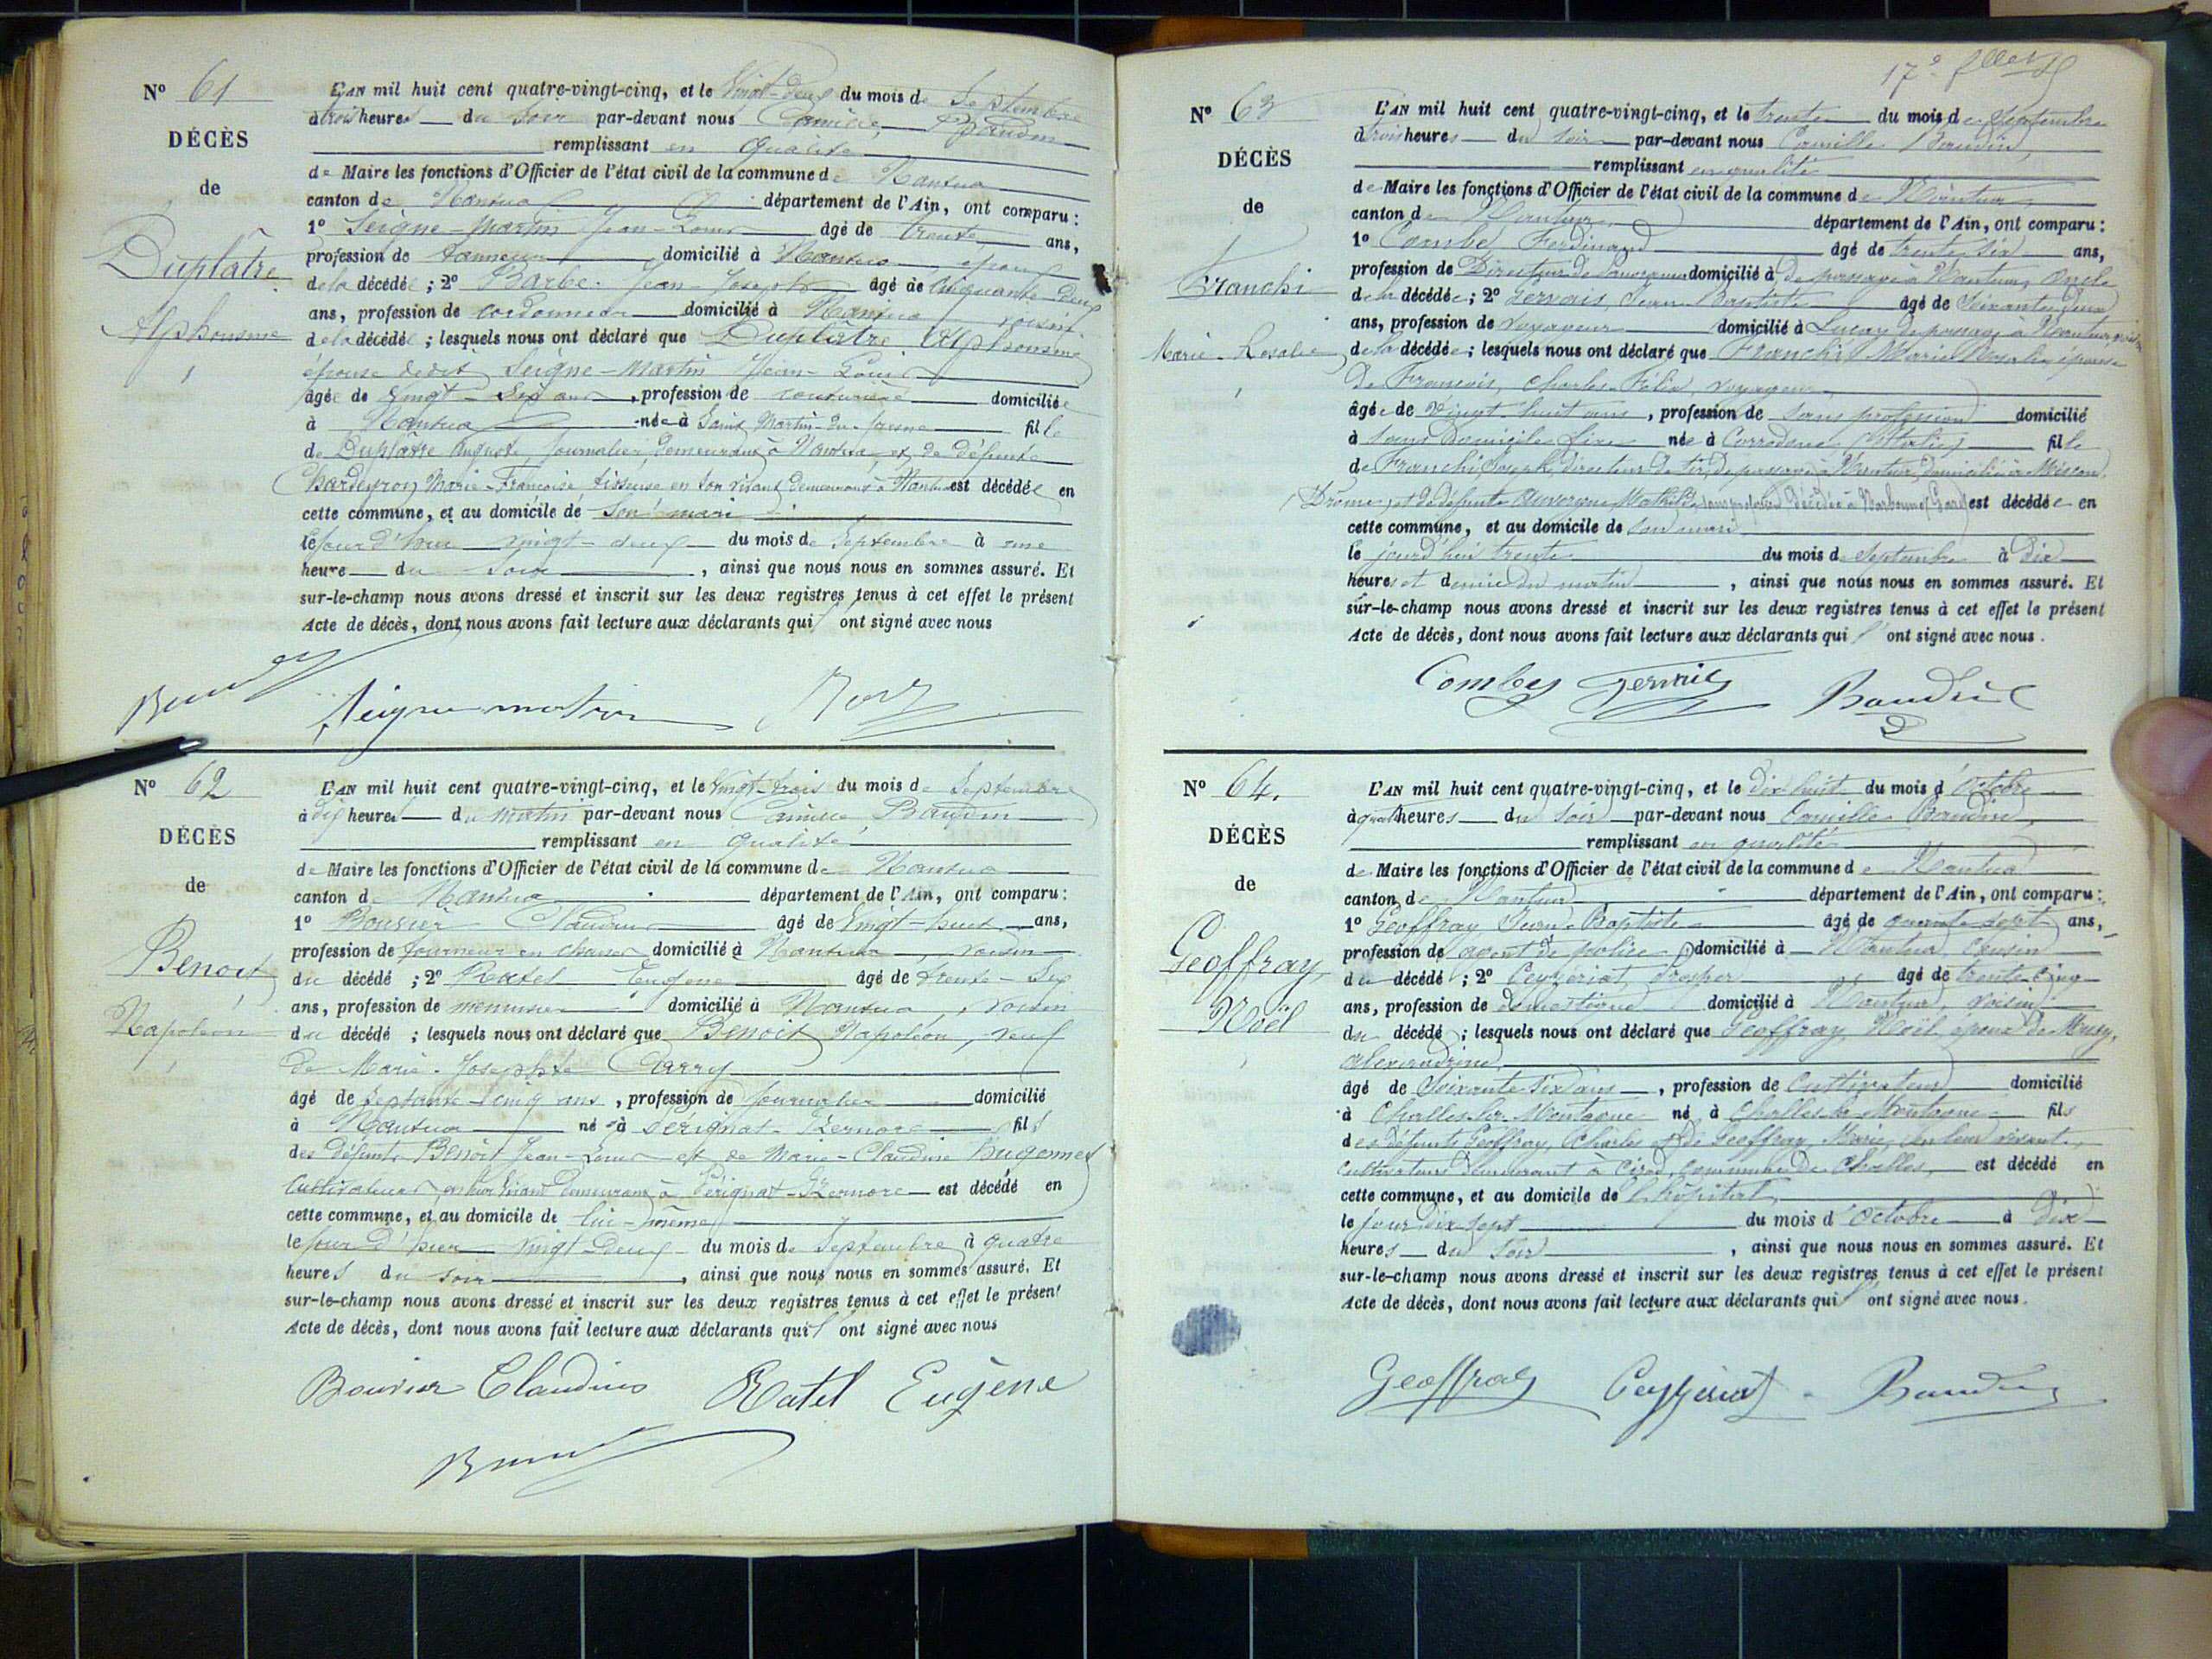 Nº 61
DÉCÈS
de
Duplâtre
Alphonsine
L'AN mil huit cent quatre-vingt-cinq, et le Vingt-deux du mois de Septembre
à trois heures du soir par-devant nous Camille Baudin
remplissant en qualité
de Maire les fonctions d'Officier de l'état civil de la commune de Nantua
canton de Nantua département de l'Ain, ont comparu :
1º Seigne-Martin Jean-Louis âgé de trente ans,
profession de tanneur domicilié à Nantua, époux
de la décédée ; 2º Barbe Jean-Joseph âgé de Cinquante-deux
ans, profession de cordonnier domicilié à Nantua voisin
de la décédée ; lesquels nous ont déclaré que Duplâtre Alphonsine
épouse dudit Seigne-Martin Jean-Louis
âgée de Vingt-Six ans, profession de couturière domiciliée
à Nantua née à Saint Martin-du-Fresne fille
de Duplâtre Auguste, Journalier, demeurant à Nantua et de défunte
Chardeyron Marie-Françoise tisseuse en son vivant demeurant à Nantua est décédée en
cette commune, et au domicile de son mari
le jour d'hui vingt-deux du mois de Septembre à une
heure du soir, ainsi que nous nous en sommes assuré. Et
sur-le-champ nous avons dressé et inscrit sur les deux registres tenus à cet effet le présent
Acte de décès, dont nous avons fait lecture aux déclarants qui ont signé avec nous
Seigne martin
Nº 62
DÉCÈS
de
Benoit
Napoléon
L'AN mil huit cent quatre-vingt-cinq, et le Vingt-trois du mois de Septembre
à dix heures du matin par-devant nous Camille Baudin
remplissant en qualité
de Maire les fonctions d'Officier de l'état civil de la commune de Nantua
canton de Nantua département de l'Ain, ont comparu :
1º Bouvier Claudius âgé de Vingt-huit ans,
profession de tourneur en chaises domicilié à Nantua, voisin
du décédé ; 2º Ratel Eugène âgé de trente-Six
ans, profession de menuisier domicilié à Nantua, voisin
du décédé ; lesquels nous ont déclaré que Benoit Napoléon, veuf
de Marie-Josephte Carry
âgé de Septante-cinq ans, profession de Journalier domicilié
à Nantua né à Sérignat-Izernore fils
des défunts Benoit Jean-Louis et de Marie-Claudine Hugonnet
Cultivateurs, en leur vivant demeurant à Pérignat-Izernore est décédé en
cette commune, et au domicile de lui-même
le jour d'hier vingt-Deux du mois de Septembre à quatre
heures du soir, ainsi que nous nous en sommes assuré. Et
sur-le-champ nous avons dressé et inscrit sur les deux registres tenus à cet effet le présent
Acte de décès, dont nous avons fait lecture aux déclarants qui ont signé avec nous
Bouvier Claudius Ratel Eugène
17e
Nº 63
DÉCÈS
de
Franchi
Marie-Rosalie
L'AN mil huit cent quatre-vingt-cinq, et le trente du mois de Septembre
à trois heures du soir par-devant nous Camille Baudin,
remplissant en qualité
de Maire les fonctions d'Officier de l'état civil de la commune de Nantua
canton de Nantua, département de l'Ain, ont comparu :
1º Combe Ferdinand âgé de trente six ans,
profession de Directeur de domicilié à de passage à Nantua, oncle
de la décédée ; 2º Gervais Jean Baptiste âgé de Soixante deux
ans, profession de voyageur domicilié à de passage à Nantua
de la décédée ; lesquels nous ont déclaré que Franchi Marie Rosalie, épouse
de François, Charles Félix, voyageur
âgée de Vingt huit ans, profession de sans profession domicilié
à sans Domicile fixe née à (Italie) fille
de Franchi Joseph, directeur de tir, de passage à Nantua, domicilié à
(Drôme) et de défunte Auvergne Mathilde, sans profession décédée à Narbonne (Gard) est décédée en
cette commune, et au domicile de son mari
le jourd'hui trente du mois de Septembre à dix
heures et demie du matin, ainsi que nous nous en sommes assuré. Et
sur-le-champ nous avons dressé et inscrit sur les deux registres tenus à cet effet le présent
Acte de décès, dont nous avons fait lecture aux déclarants qui ont signé avec nous.
Combes Gervais Baudin
Nº 64.
DÉCÈS
de
Geoffray
Noël
L'AN mil huit cent quatre-vingt-cinq, et le dix huit du mois d'Octobre
à quatre heures du soir par-devant nous Camille Baudin,
remplissant en qualité
de Maire les fonctions d'Officier de l'état civil de la commune de Nantua
canton de Nantua département de l'Ain, ont comparu :
1º Geoffray Jean Baptiste âgé de quarante sept ans,
profession de agent de police domicilié à Nantua, cousin
du décédé ; 2º Ceyzeriat Prosper âgé de trente cinq
ans, profession de domestique domicilié à Nantua, voisin
du décédé ; lesquels nous ont déclaré que Geoffray Noël époux de
Alexandrine
âgé de Soixante Six ans, profession de Cultivateur domicilié
à Challes la Montagne né à Challes la Montagne fils
des défunts Geoffray, Charles et de Geoffray, Marie, en leur vivant
cultivateurs demeurant à Cirod, commune de Challes, est décédé en
cette commune, et au domicile de l'hôpital
le jour dix sept du mois d'Octobre à dix
heures du soir, ainsi que nous nous en sommes assuré. Et
sur-le-champ nous avons dressé et inscrit sur les deux registres tenus à cet effet le présent
Acte de décès, dont nous avons fait lecture aux déclarants qui ont signé avec nous.
Geoffray Ceyzeriat Baudin